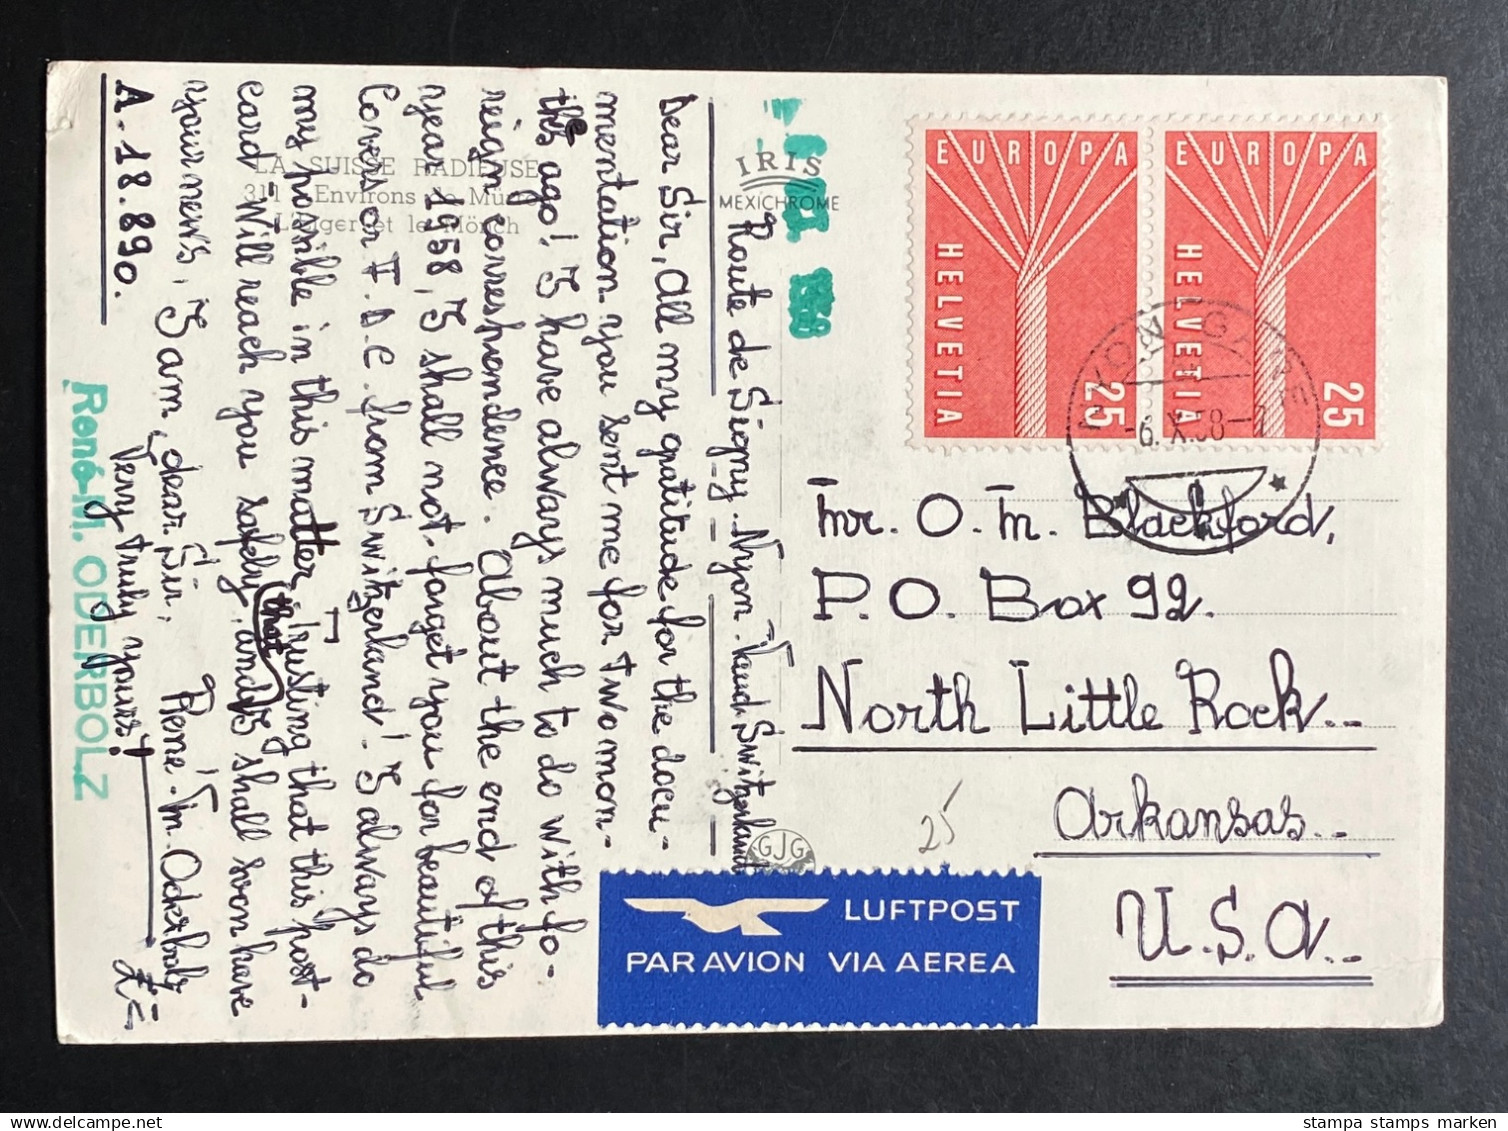 Route de Signy. Nyon. Vaud. Switzerland
Dear Sir, All my gratitude for the docu-
mentation you sent me for two mon-
ths ago! I have always much to do with fo-
reign correspondence. About the end of this
year 1958, I shall not forget you for beautiful
Covers or F.D.C. from Switzerland! I always do
my possible in this matter. Trusting that this post-
card will reach you safely, and that I shall soon have
your news, I am, dear Sir,
Very truly yours!
René-M. Oderbolz
A-18.890.
René-M. ODERBOLZ
LA SUISSE RADIEUSE
Environs de
L'Eiger et le Mönch
IRIS
MEXICHROME
GJG
EUROPA
HELVETIA
25
EUROPA
HELVETIA
25
NYON GARE
-6.X.58-7
Mr. O. M. Blackford,
P.O. Box 92.
North Little Rock...
Arkansas...
U.S.A...
25
LUFTPOST
PAR AVION VIA AEREA
stampa stamps marken